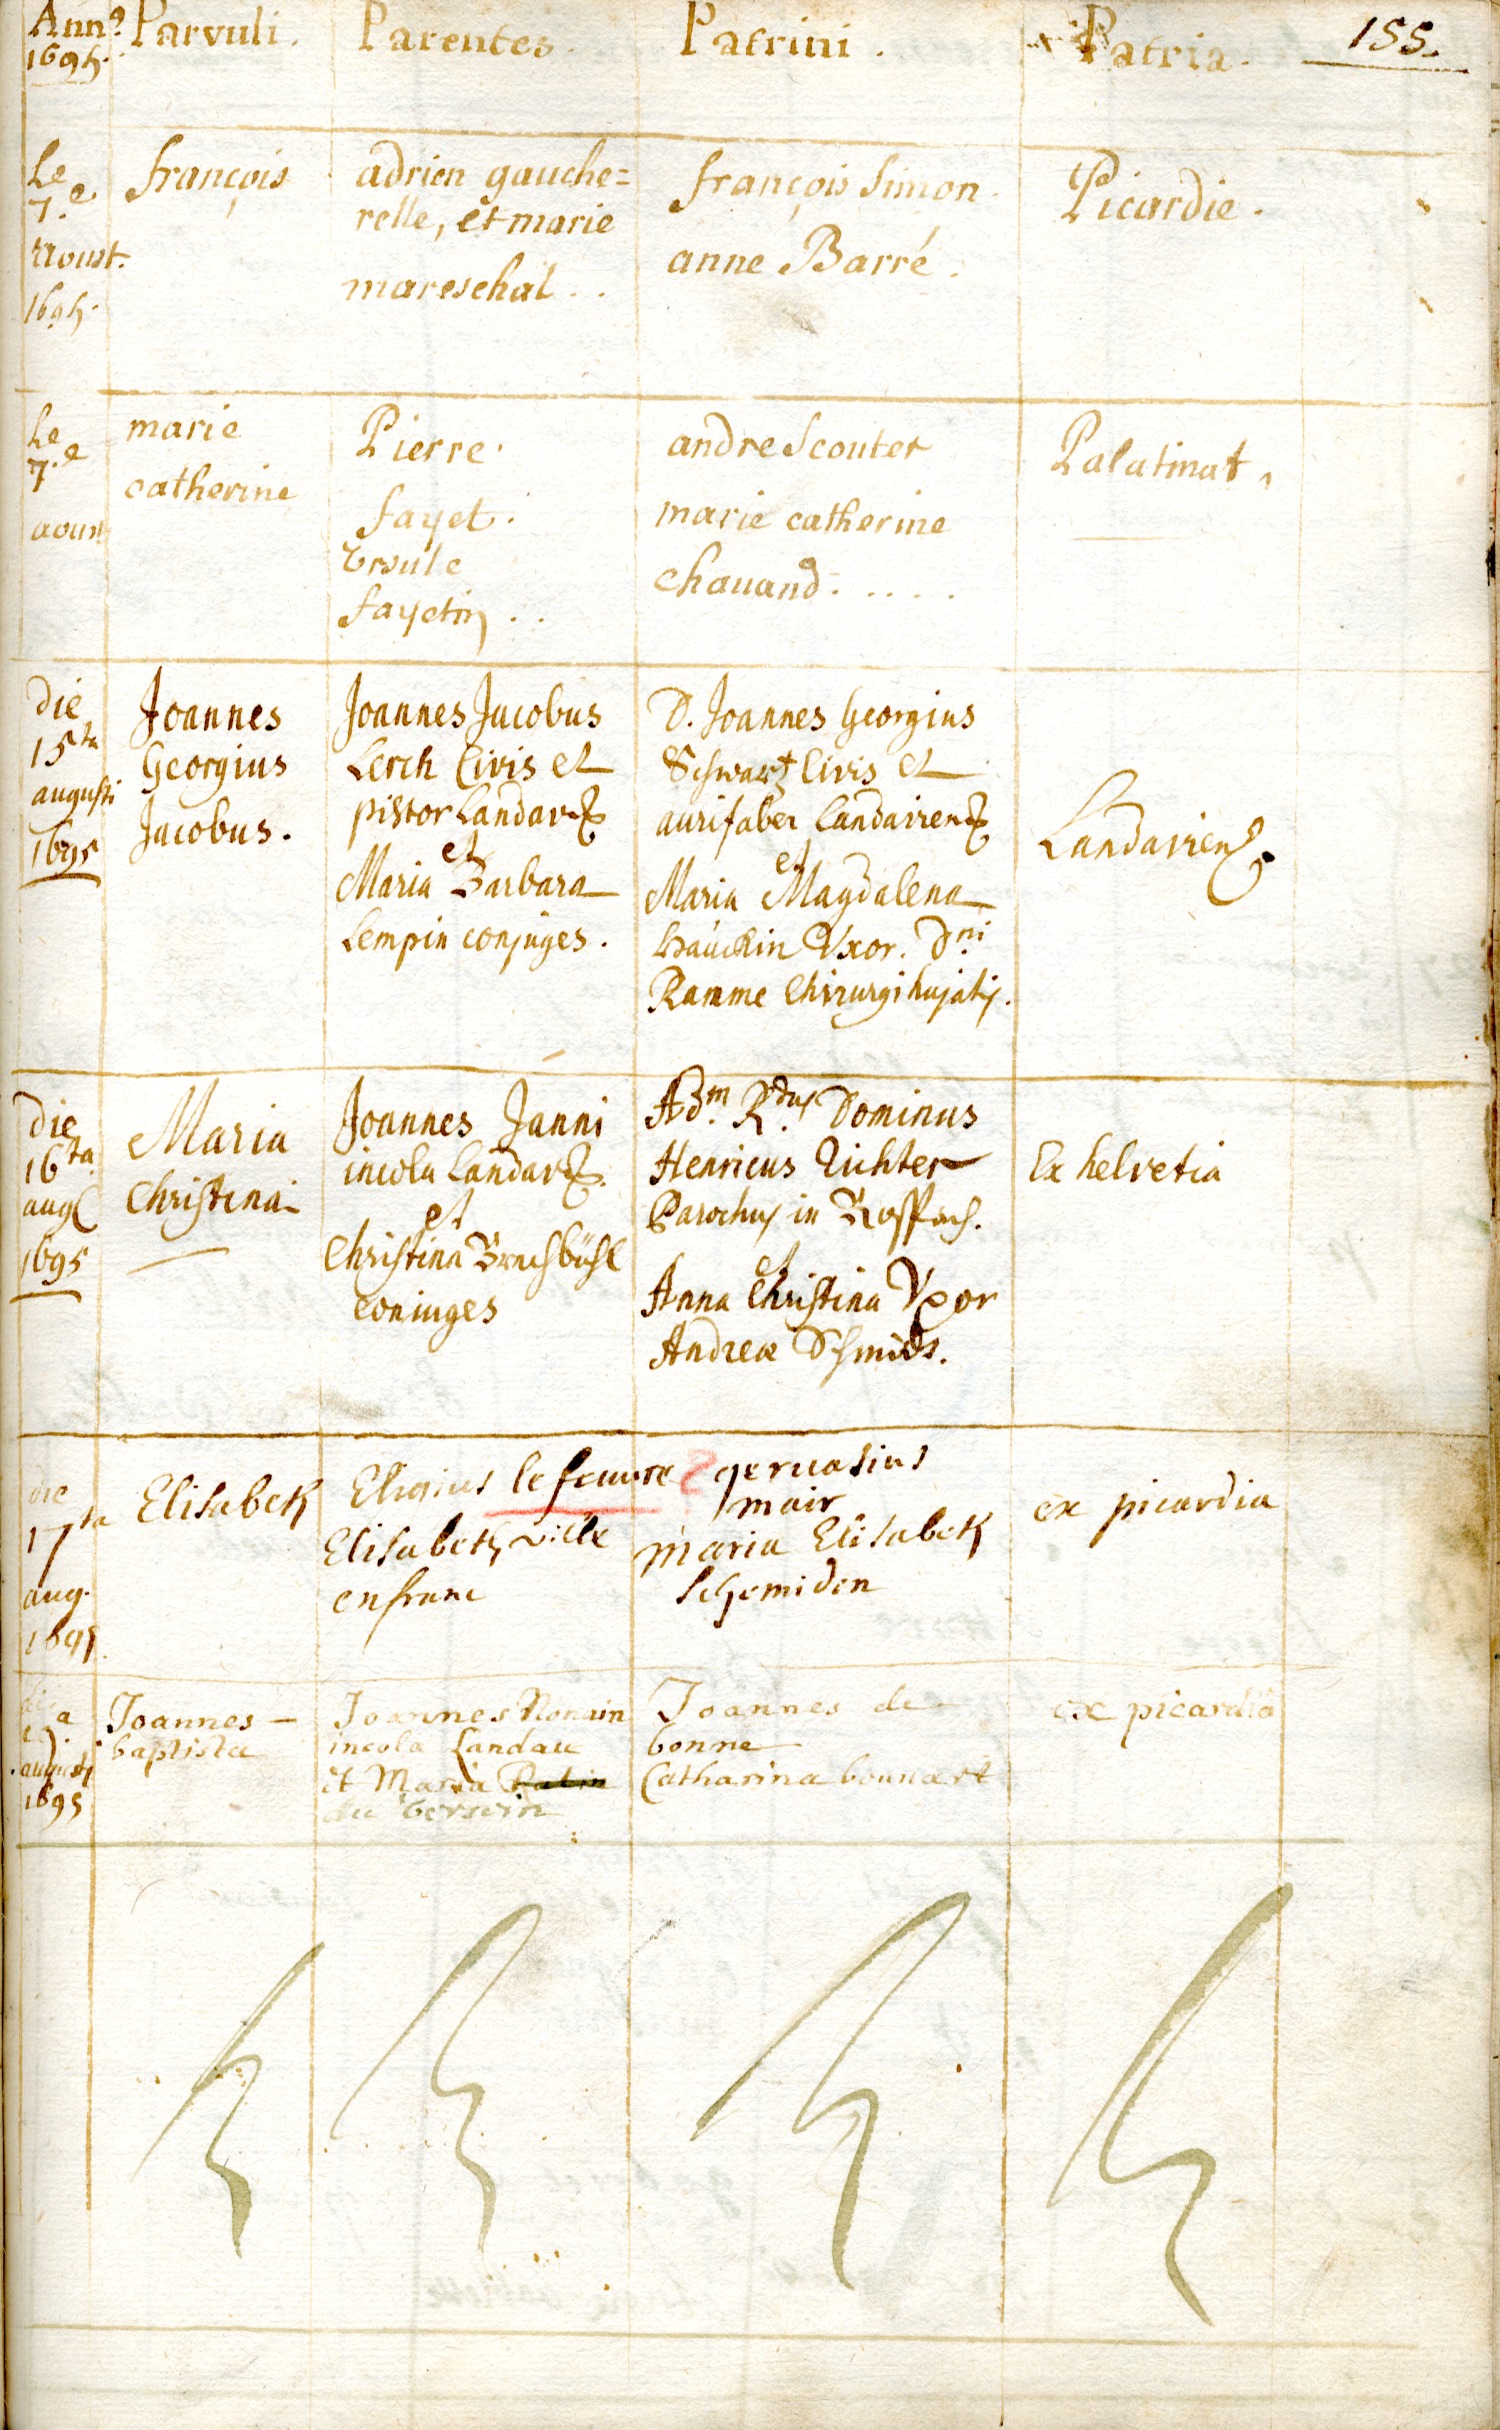 Ann.o Parvuli. Parentes. Patrini. Patria. 155.
1695.
Le
7.e
Aoust.
1695.
françois
adrien gauche=
relle, et marie
mareschal . .
françois Simon.
anne Barré.
Picardie.
Le
7.e
aoust
marie
catherine
Pierre.
fayet.
Ursule
fayetin . .
andre Scouter
marie catherine
chauand. . . . .
Palatinat.
Die
15ta
augusti
1695
Joannes
Georgius
Jacobus.
Joannes Jacobus
Lerch Civis et
pistor Landav.
et
Maria Barbara
Lempin conjuges.
D. Joannes Georgius
Schwartz Civis et
aurifaber Landaviens.
et
Maria Magdalena
Hauckin Vxor. Dni
Ramme Chirurgi hujatis.
Landaviens.
Die
16ta
aug
1695
Maria
Christina
Joannes Janni
incola Landav.
et
Christina Brachbühl
coniuges
Adm. Rdus. Dominus
Henricus Richter
Parochus in Roschbach.
et
Anna Christina Vxor
Andreæ Schmids.
Ex helvetia
die
17ta
aug.
1695
Elisabeth
Eligius le feuure
Elisabeth ville
enfranc
geruasius
mair
maria Elisabeth
schemiden
ex picardia
augusti
1695
Joannes
baptista
Joannes Romain
incola Landau
et Maria
du
Joannes de
bonne
Catharina bonnart
ex picardia